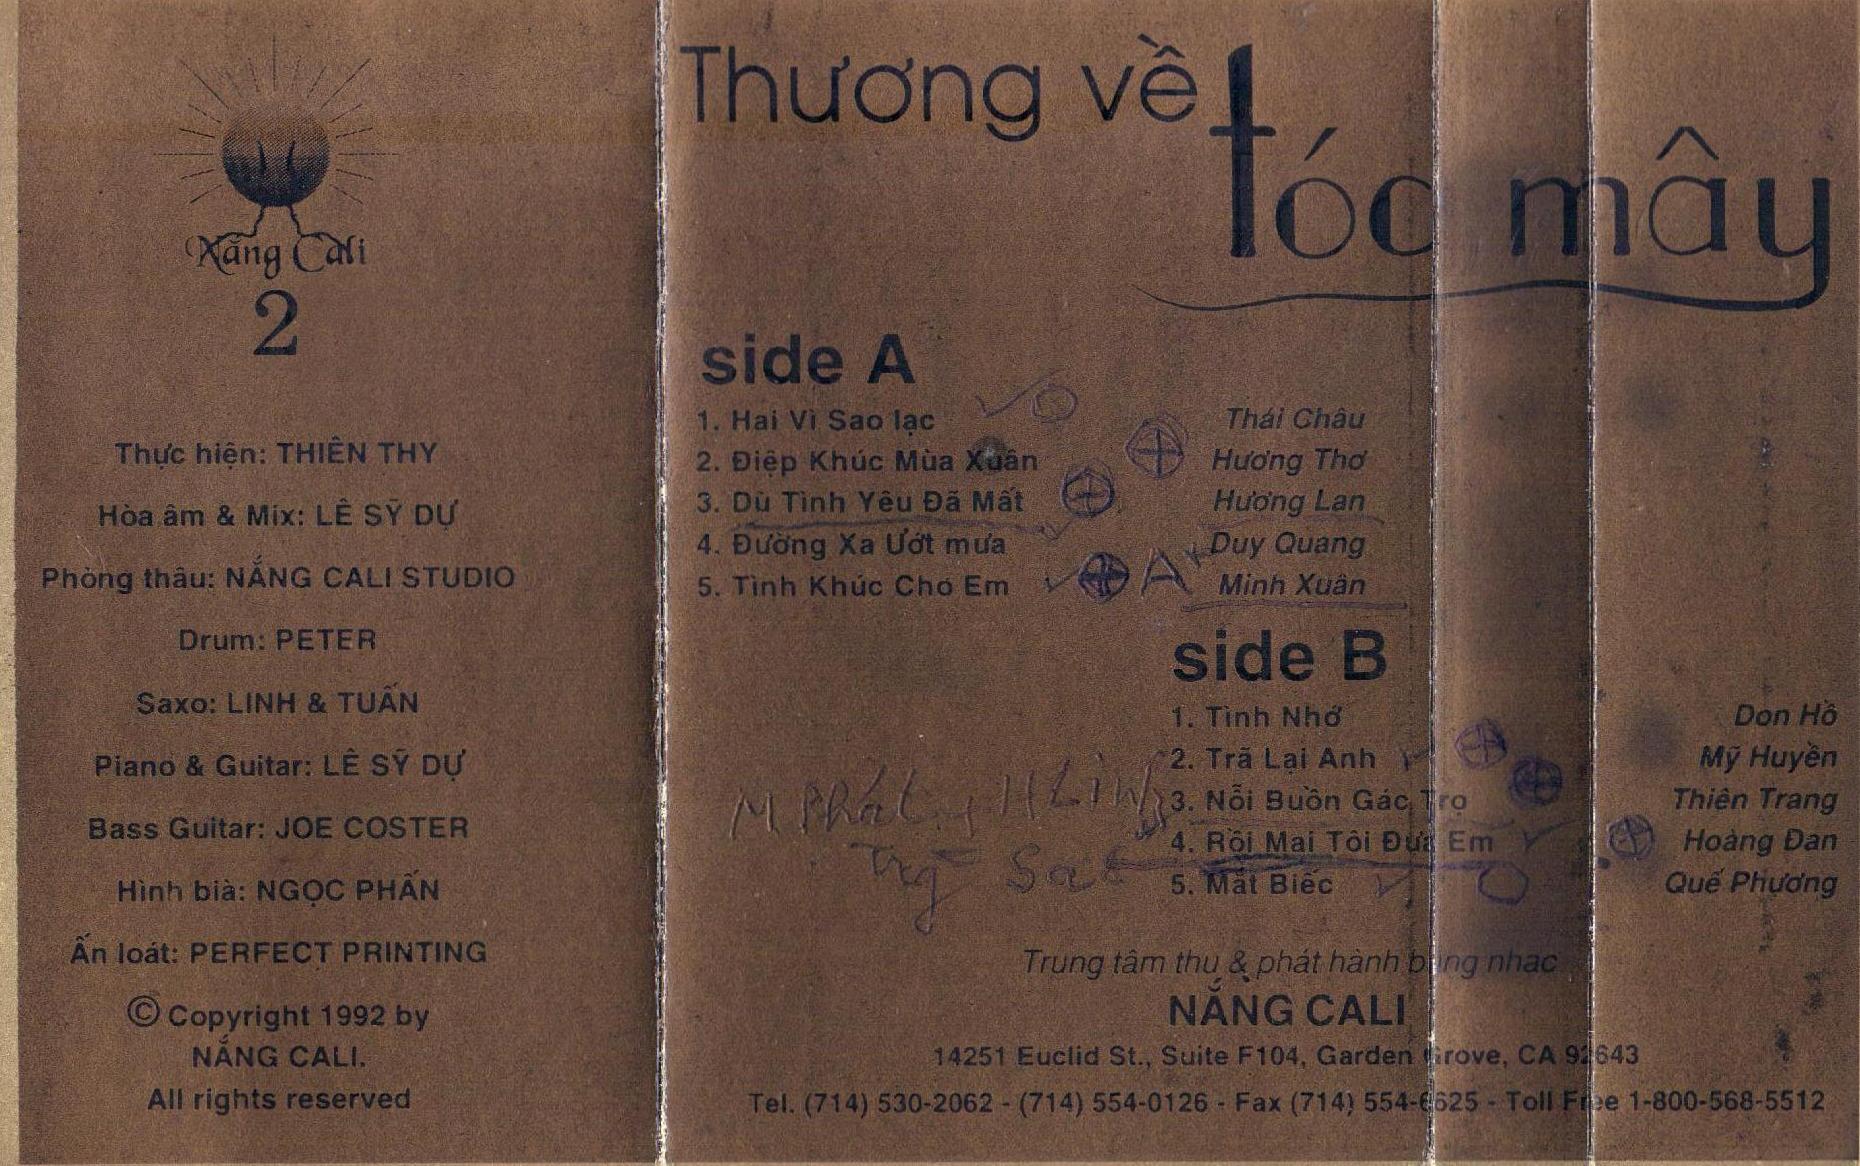 Nắng Cali
2
Thực hiện: THIÊN THY
Hòa âm & Mix: LÊ SỸ DỰ
Phòng thâu: NẮNG CALI STUDIO
Drum: PETER
Saxo: LINH & TUẤN
Piano & Guitar: LÊ SỸ DỰ
Bass Guitar: JOE COSTER
Hình bià: NGỌC PHẤN
Ấn loát: PERFECT PRINTING
© Copyright 1992 by
NẮNG CALI.
All rights reserved
Thương về
tóc mây
side A
1. Hai Vì Sao lạc Thái Châu
2. Điệp Khúc Mùa Xuân Hương Thơ
3. Dù Tình Yêu Đã Mất Hương Lan
4. Đường Xa Ướt mưa Duy Quang
5. Tình Khúc Cho Em Minh Xuân
side B
1. Tình Nhớ Don Hồ
2. Trã Lại Anh Mỹ Huyền
3. Nỗi Buồn Gác Trọ Thiên Trang
4. Rồi Mai Tôi Đưa Em Hoàng Đan
5. Mắt Biếc Quế Phương
M Phát
Trung tâm thu & phát hành băng nhạc
NẮNG CALI
14251 Euclid St., Suite F104, Garden Grove, CA 92643
Tel. (714) 530-2062 - (714) 554-0126 - Fax (714) 554-6625 - Toll Free 1-800-568-5512